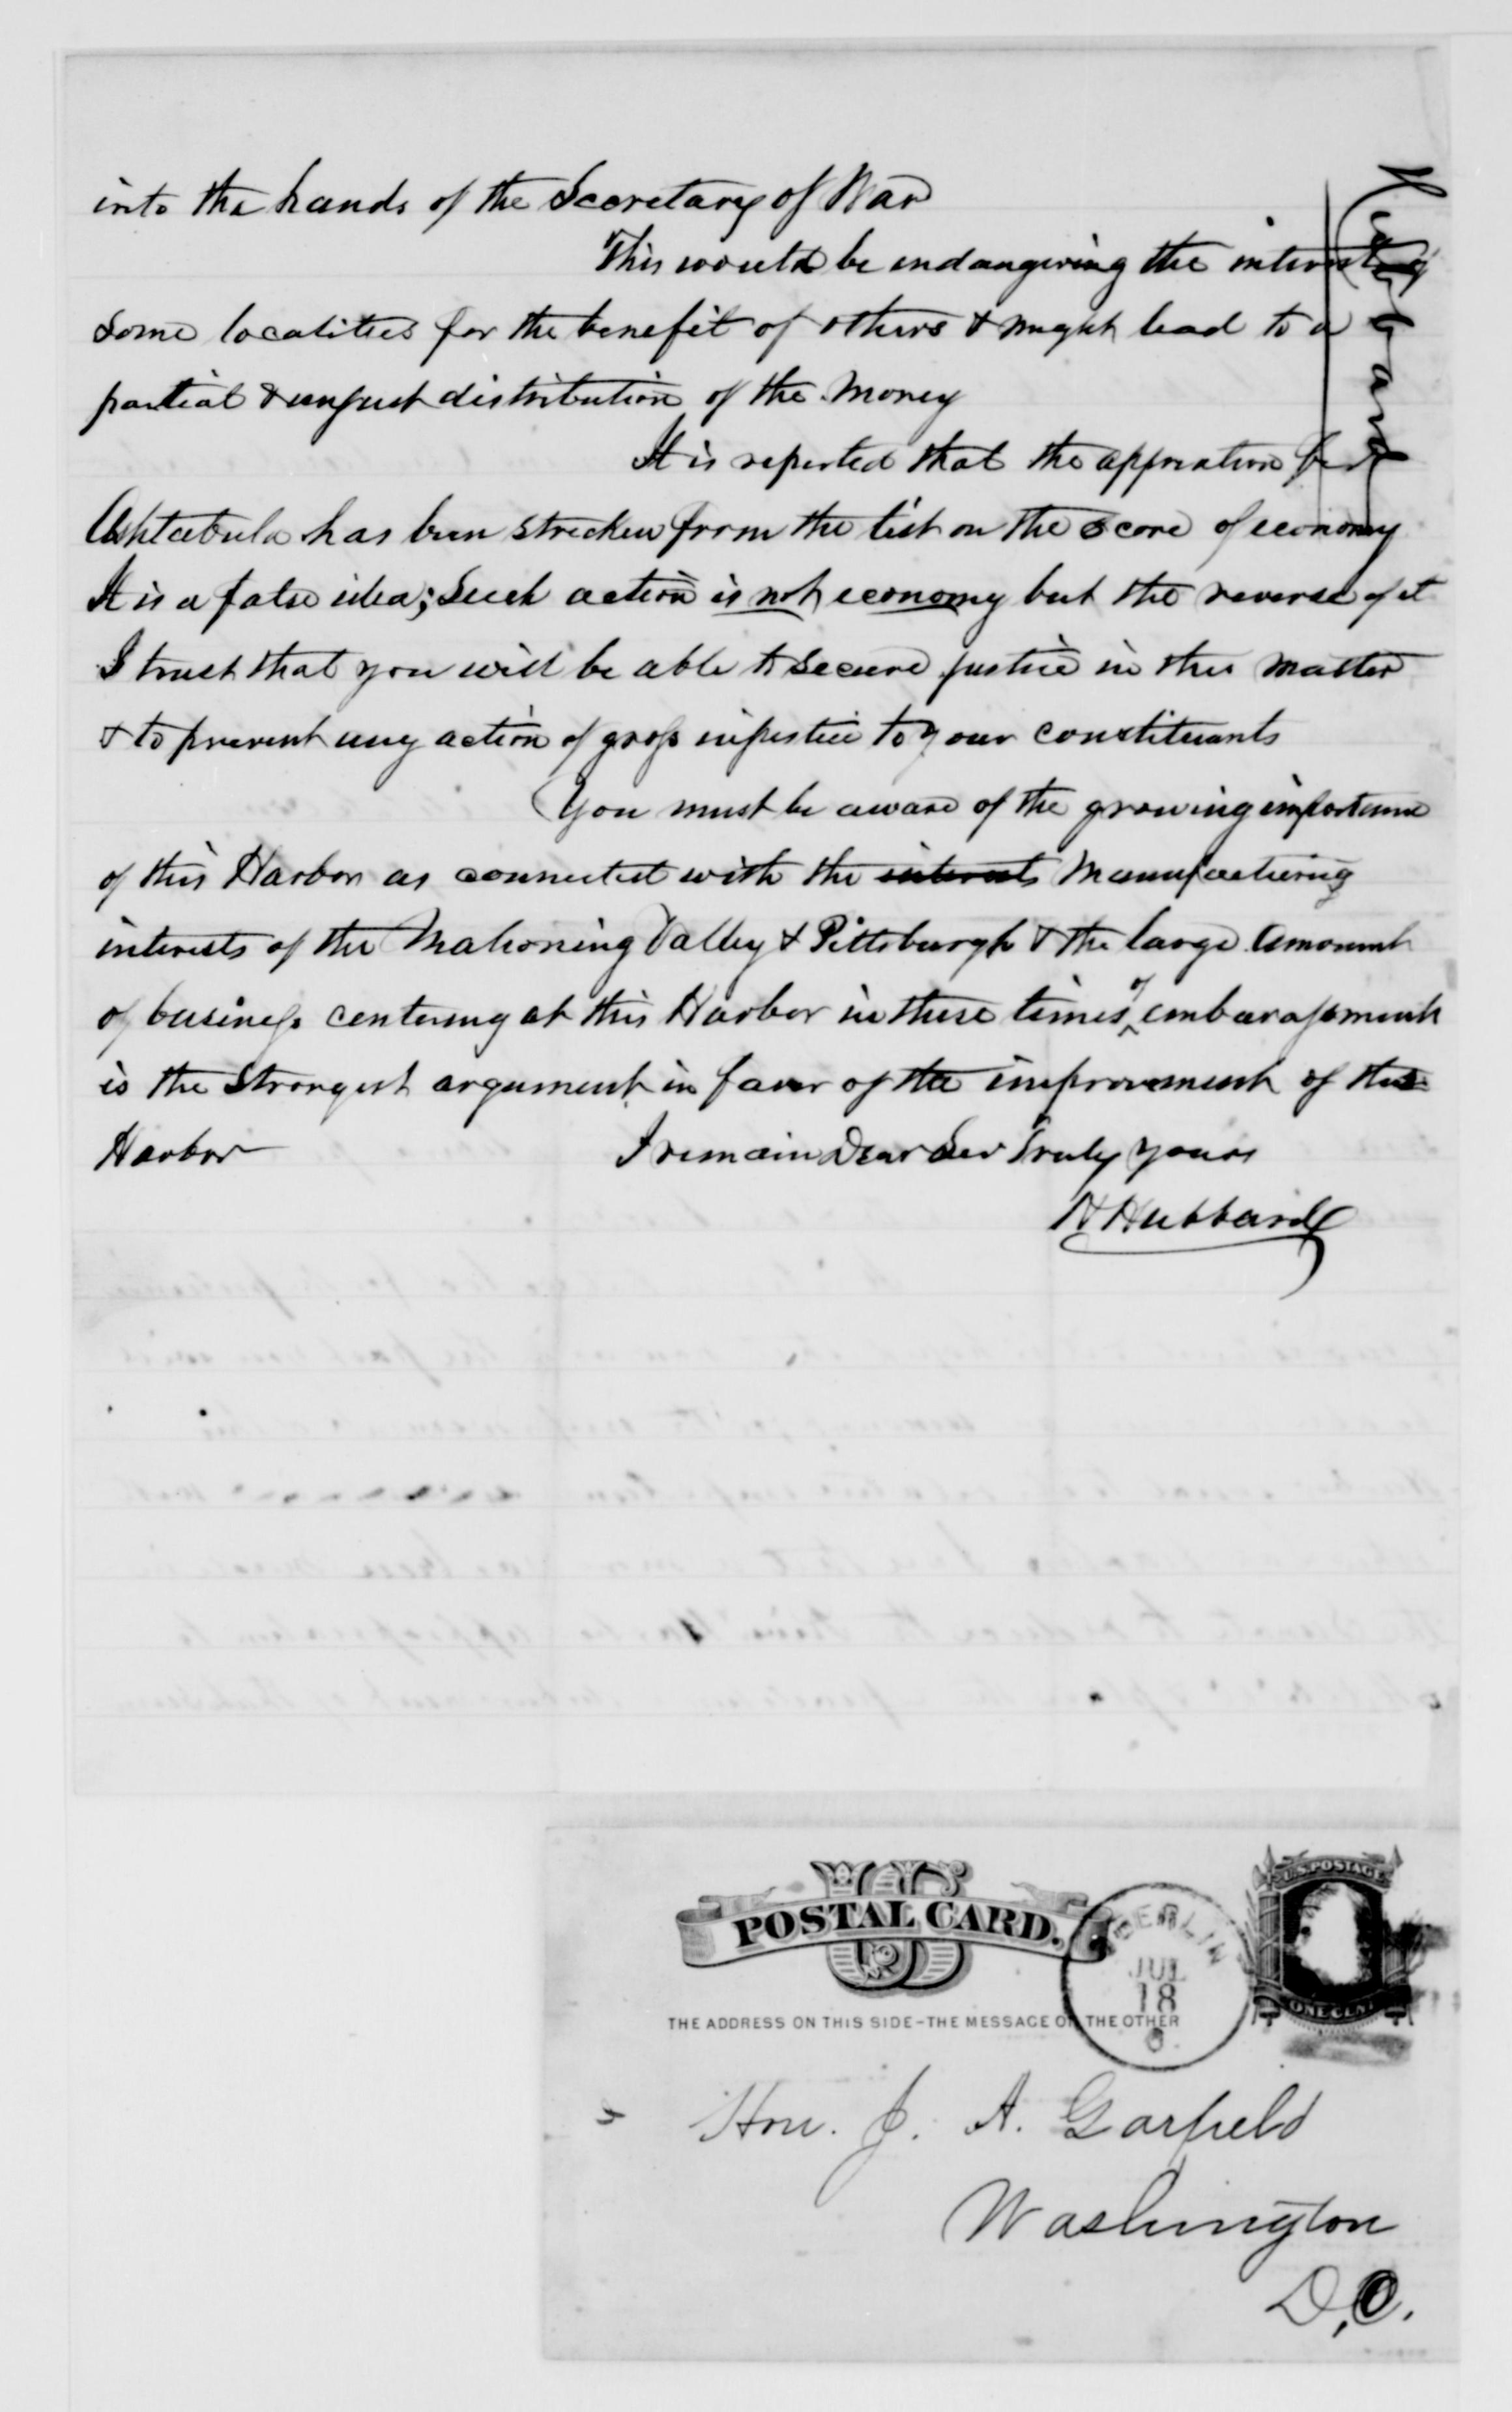 into the hands of the Secretary of War
This would be endangering the interest of
some localities for the benefit of others & might lead to a
partial & unjust distribution of the money
It is reported that the appriation for
Ashtabula has been stricken from the list on the score of economy
It is a false idea; Such action is not economy but the reverse of it
I trust that you will be able to secure justice in this matter
& to prevent any action of gross injustice to your constituants
You must be aware of the growing importance
of this Harbor as connected with the interests Manufacturing
interests of the Mahoning Valley & Pittsburgh & the large amount
of business centering at this Harbor in these times of embarassment
is the strongest argument in favor of the improvement of this
Harbor I remain Dear Sir Truly yours
H Hubbard
Hubbard
U.S. POSTAGE
US
POSTAL CARD.
BERLIN
JUL
18
O.
ONE CENT
THE ADDRESS ON THIS SIDE-THE MESSAGE ON THE OTHER
Hon. J. A. Garfield
Washington
D,C.